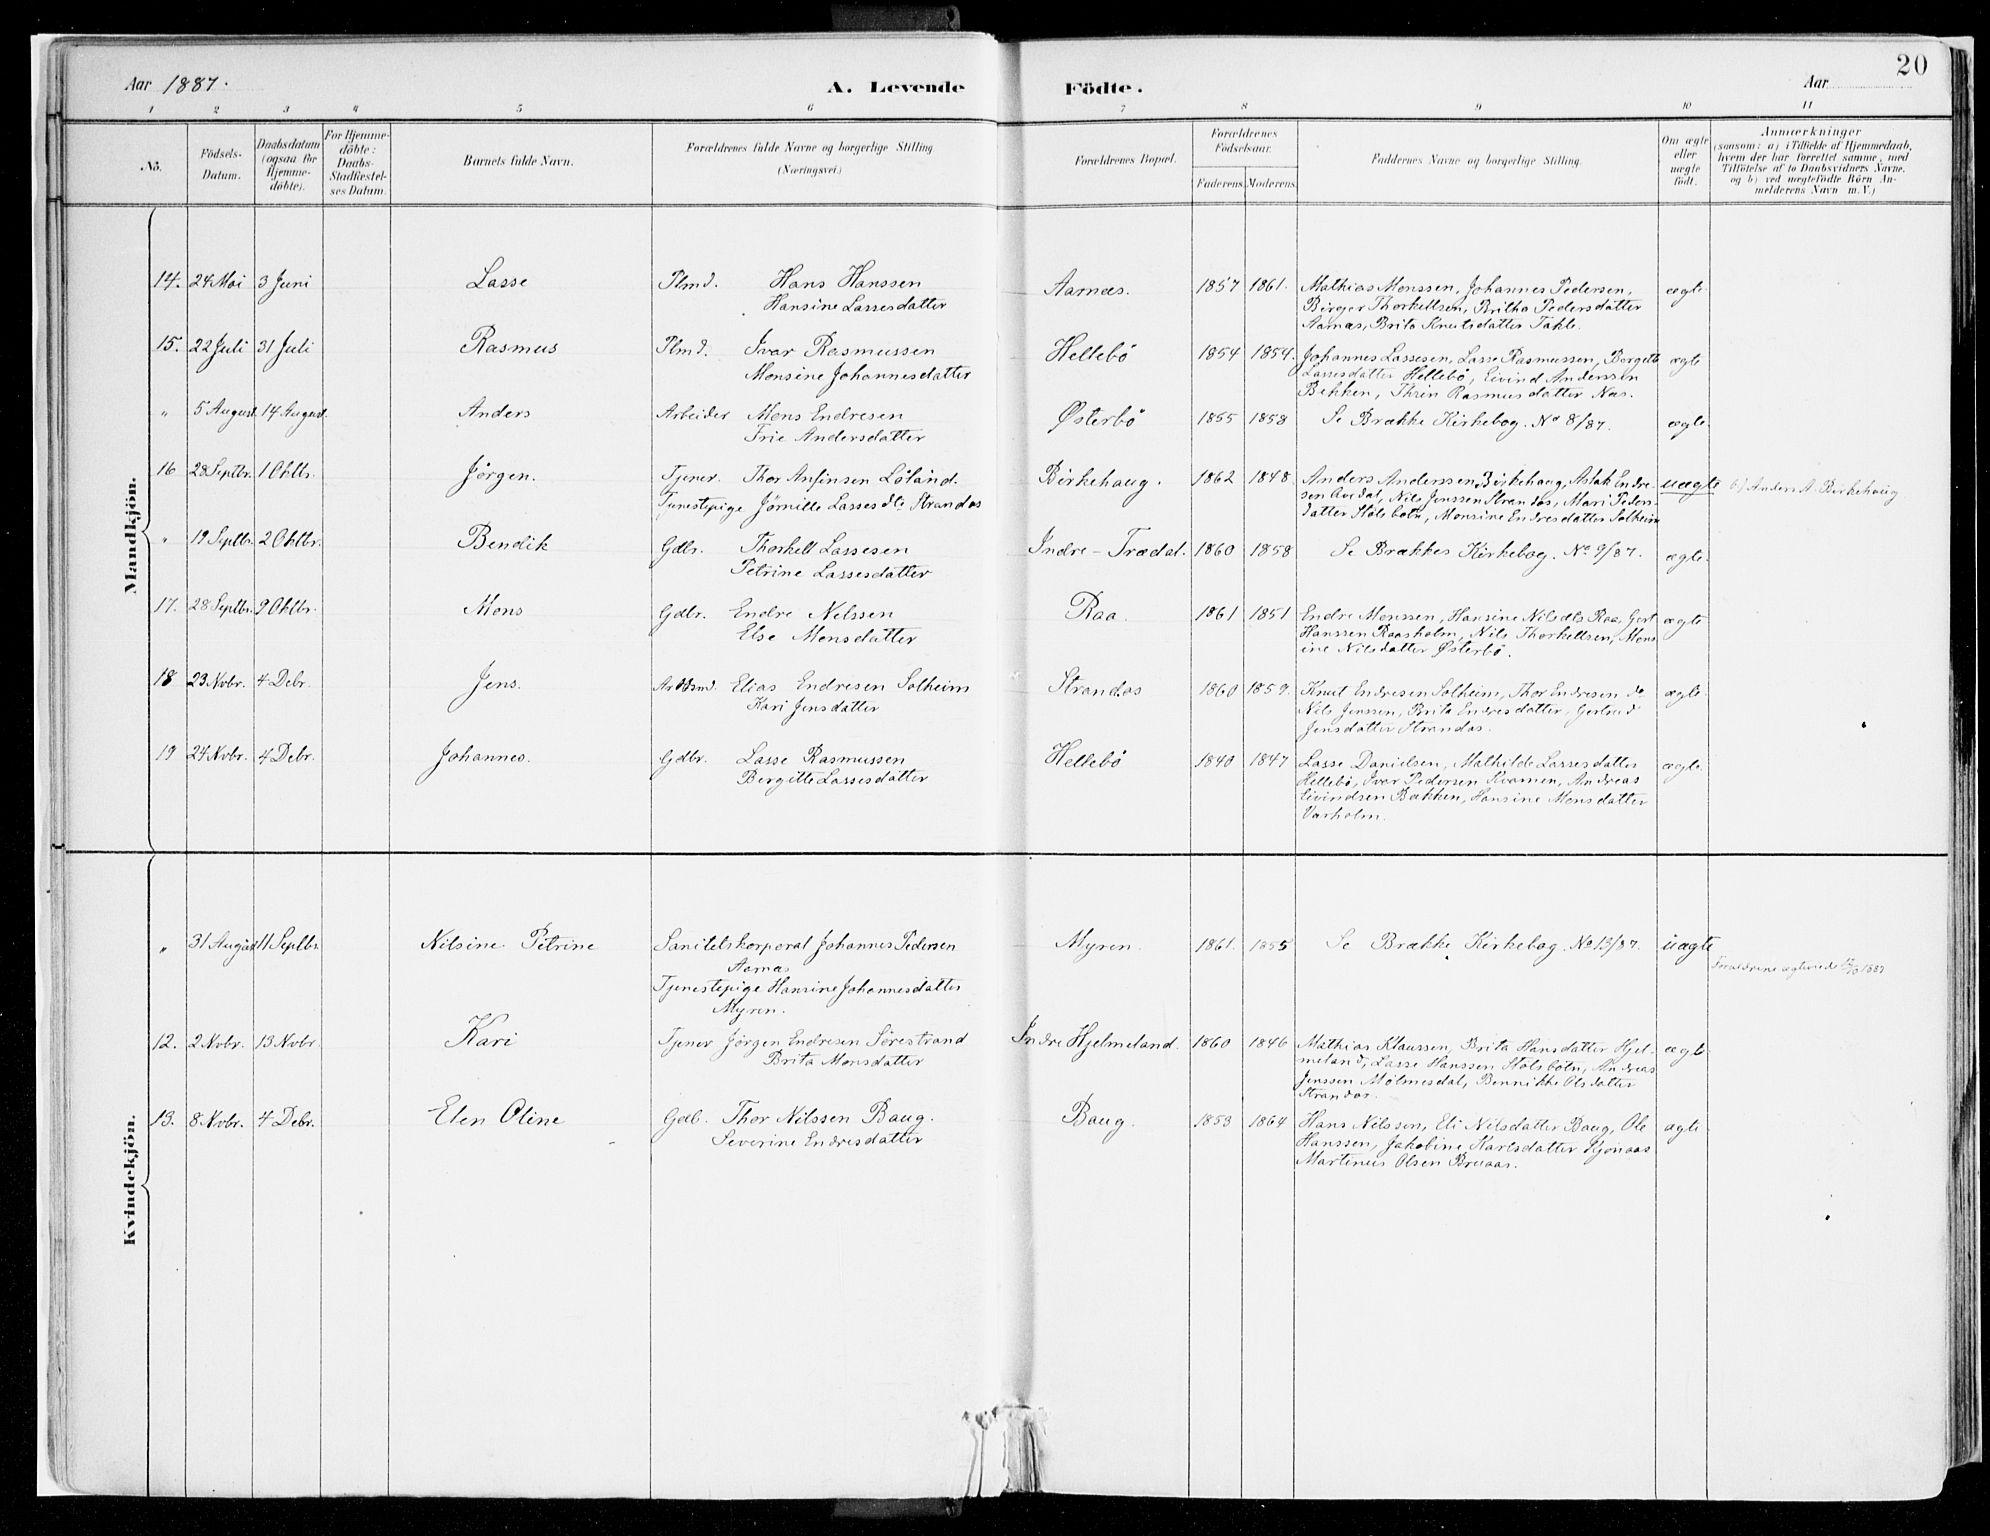 20
Aar 1887.
A. Levende Födte.
Aar
1 2 3 4 5 6 7 8 9 10 11
No.
Födsels-Datum.
Daabsdatum (ogsaa for Hjemme-döbte).
For Hjemme-döbte: Daabs-Stadfæstel-ses Datum.
Barnets fulde Navn.
Forældrenes fulde Navne og borgerlige Stilling (Næringsvei.)
Forældrenes Bopæl.
Forældrenes Födselsaar.
Faderens Moderens
Faddernes Navne og borgerlige Stilling.
Om ægte eller uægte födt.
Anmærkninger
(saasom: a) i Tilfælde af Hjemmedaab,
hvem der har forrettet samme, med
Tilföielse af to Daabsvidners Navne,
og b) ved uægtefödte Börn An-
melderens Navn m. V.)
Mandkjön.
14. 24 Mai 3 Juni Lasse Plmd. Hans Hanssen Aarnæs. 1857 1861. Mathias Monssen, Johannes Pedersen, ægte.
Hansine Lassesdatter Birger Thorkellsen, Britha Pedersdatter
Aarnæs, Brita Knutsdatter Takle.
15. 22 Juli 31 Juli Rasmus Plmd. Ivar Rasmussen Hellebö 1854 1854. Johannes Lassesen, Lasse Rasmussen, Bergitte ægte
Monsine Johannesdatter Lassesdatter Hellebö, Eivind Anderssen
Bekken, Thrin Rasmusdatter Næs.
" 5 August 14 August Anders Arbeider Mons Endresen Østerbö 1855 1858 Se Brække Kirkebog. No 8/87. ægte.
Trie Andersdatter
16 28 Septbr. 1 Oktbr. Jörgen. Tjener. Thor Anfinsen Löland. Birkehaug. 1862 1848 Anders Anderssen Birkehaug, Aslak Endre- uægte b) Anders A. Birkehaug
Tjenestepige Jörnille Lassesdtr. Strandos sen Aurdal, Nils Jenssen Strandos, Mari Peders-
datter Stölsbotn, Monsine Endresdatter Solheim
" 19 Septbr. 2 Oktbr. Bendik Gdbr. Thorkell Lassesen Indre-Trædal. 1860 1858 Se Brækkes Kirkebog. No 9/87. ægte.
Petrine Lassesdatter
17. 28 Septbr. 9 Oktbr. Mons Gdbr. Endre Nilssen Raa. 1861 1851 Endre Monssen, Hansine Nilsdtr Raa, Gert ægte
Else Monsdatter Hanssen Raasholm, Nils Thorkellsen, Mons-
ine Nilsdatter Østerbö.
18 23 Nvbr. 4 Debr. Jens. Elias Endresen Solheim Strandos 1860 1859. Knut Endresen Solheim, Thor Endresen do ægte.
Kari Jensdatter Nils Jenssen, Brita Endresdatter, Gertrud
Jensdatter Strandos.
19 24 Nvbr. 4 Debr. Johannes. Gdbr. Lasse Rasmussen Hellebö 1840 1847 Lasse Danielsen, Mathilde Lassesdatter ægte.
Bergitte Lassesdatter Hellebö, Ivar Pedersen Kvamen, Andreas
Eivindsen Bækken, Hansine Monsdatter
Varholm.
Kvindekjön.
" 31 August 11 Septbr. Nilsine Petrine Sanitetskorporal Johannes Pedersen Myren. 1861. 1855 Se Brække Kirkebog. No 13/87. uægte
Aarnæs Forældrene ægteviede 1887
Tjenestepige Hansine Johannesdatter
Myren.
12. 2 Nvbr. 13 Nvbr. Kari Tjener Jörgen Endresen Sörestrand Indre Hjelmeland. 1860 1846 Mathias Klaussen, Brita Hansdatter Hjel- ægte
Brita Monsdatter meland, Lasse Hanssen Stölsbotn, Andreas
Jenssen Mölmesdal, Bennikke Olsdatter
Strandos.
13. 8 Nvbr. 4 Debr. Elen Oline Gdb. Thor Nilssen Baug. Baug. 1853 1864 Hans Nilssen, Eli Nilsdatter Baug, Ole ægte.
Severine Endresdatter Hanssen, Jakobine Karlsdatter Hjönaas
Martinus Olsen Bruaas.